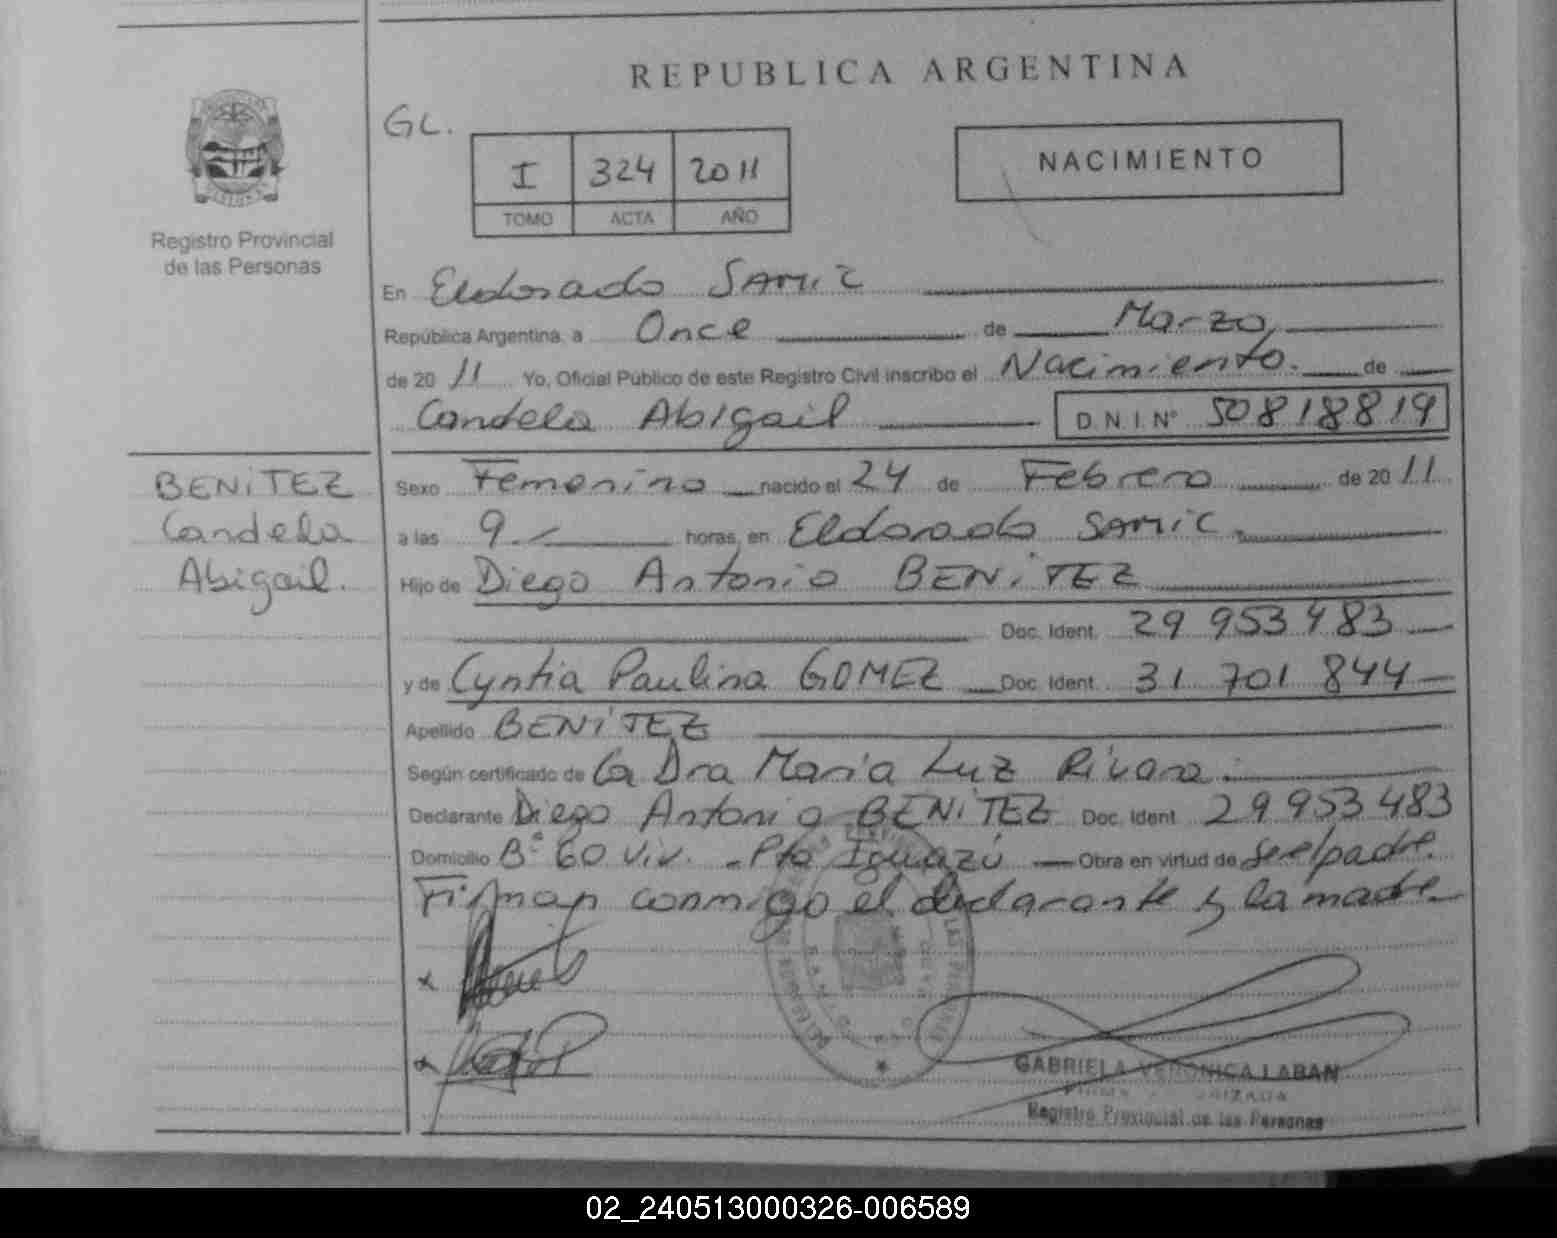 REPUBLICA ARGENTINA
GL.
I 324 2011
TOMO ACTA AÑO
NACIMIENTO
Registro Provincial
de las Personas
En Eldorado SAMIC
República Argentina, a Once de Marzo
de 2011 Yo, Oficial Público de este Registro Civil inscribo el Nacimiento. de
Candela Abigail D.N.I. Nº 50818819
BENITEZ
Candela
Abigail.
Sexo Femenino nacido el 24 de Febrero de 2011
a las 9.- horas, en Eldorado SAMIC
Hijo de Diego Antonio BENITEZ
Doc. Ident. 29 953 483
y de Cyntia Paulina GOMEZ Doc. Ident. 31 701 844
Apellido BENITEZ
Según certificado de La Dra Maria Luz Rivara.
Declarante Diego Antonio BENITEZ Doc. Ident. 29 953 483
Domicilio Bº 60 Viv. - Pto Iguazú Obra en virtud de ser el padre.
Firman conmigo el declarante y la madre
GABRIELA VERONICA LABAN
Registro Provincial de las Personas
02_240513000326-006589